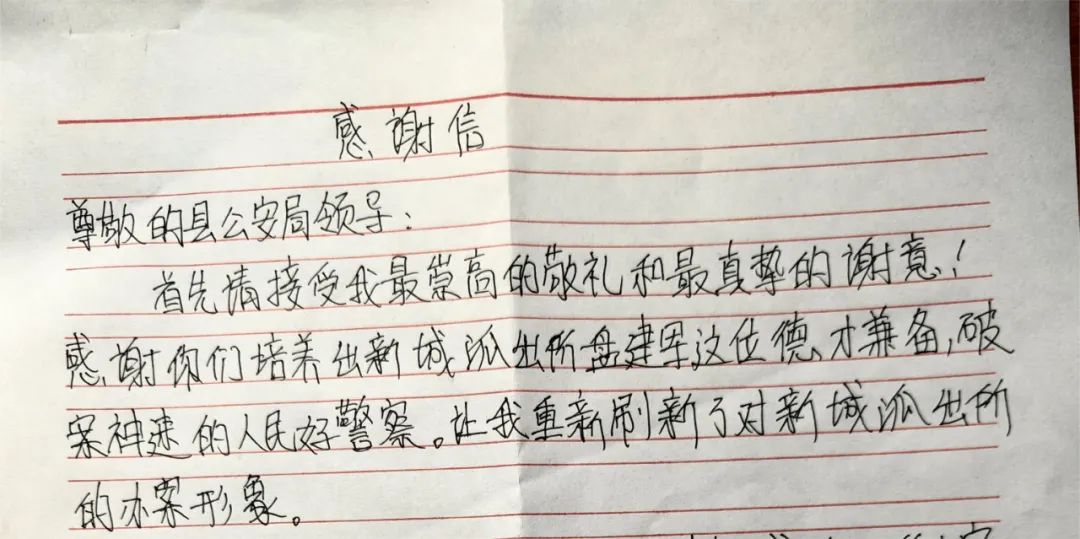 感谢信
尊敬的县公安局领导:
首先请接受我最崇高的敬礼和最真挚的谢意!
感谢你们培养出新城派出所盘建军这位德才兼备,破
案神速的人民好警察。让我重新刷新了对新城派出所
的办案形象。